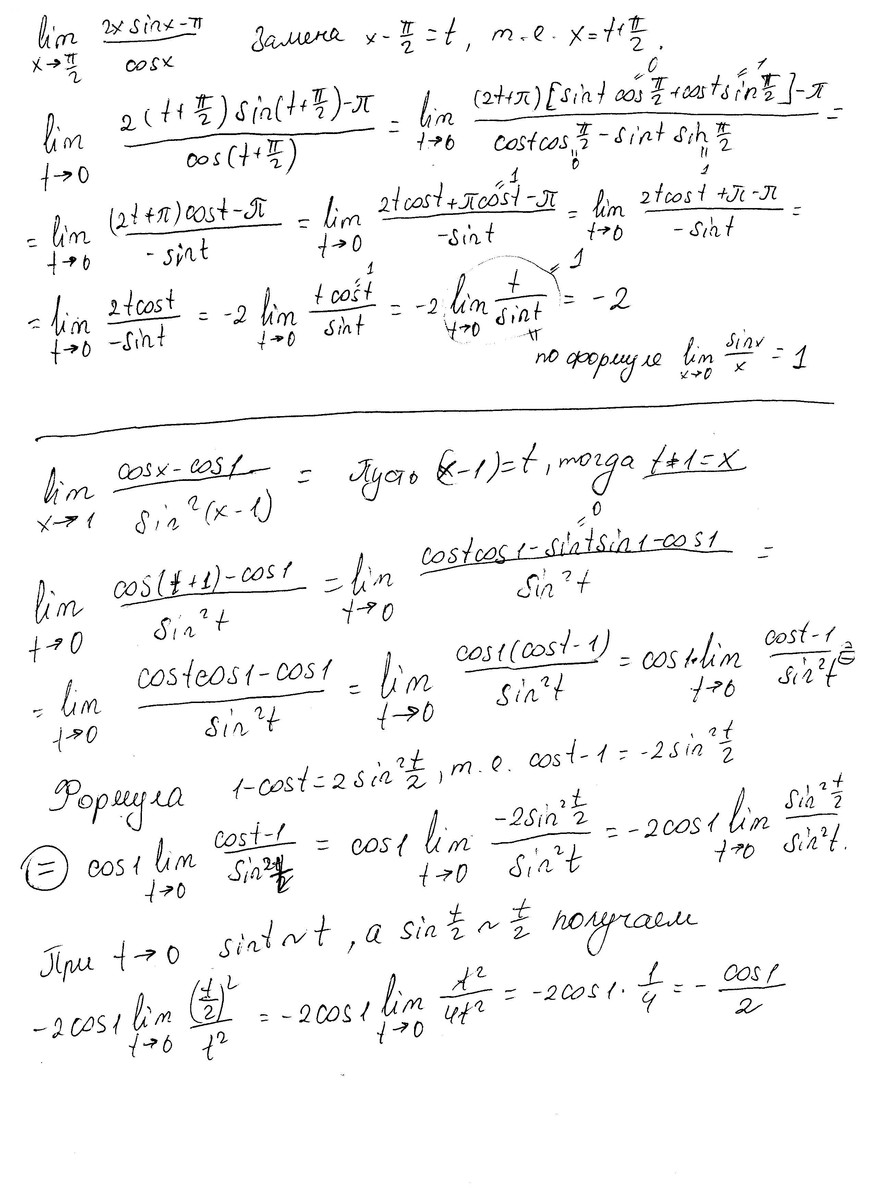 lim x→π/2 (2x sinx - π)/cosx Замена x - π/2 = t, т.е. x = t + π/2.
lim t→0 (2(t + π/2) sin(t + π/2) - π)/cos(t + π/2) = lim t→0 ((2t+π)[sint cos π/2 (=0) + cost sin π/2 (=1)] - π)/(cost cos π/2 (=0) - sint sin π/2 (=1)) =
= lim t→0 ((2t+π)cost - π)/(-sint) = lim t→0 (2tcost + πcost (=1) - π)/(-sint) = lim t→0 (2tcost + π - π)/(-sint) =
= lim t→0 2tcost/(-sint) = -2 lim t→0 t cost (=1)/sint = -2 lim t→0 t/sint (=1) = -2
по формуле lim x→0 sinx/x = 1
lim x→1 (cosx - cos1)/sin²(x-1) = Пусть (x-1)=t, тогда t+1=x
lim t→0 (cos(t+1) - cos1)/sin²t = lim t→0 (costcos1 - sintsin1 (=0) - cos1)/sin²t =
= lim t→0 (costcos1 - cos1)/sin²t = lim t→0 cos1(cost-1)/sin²t = cos1·lim t→0 (cost-1)/sin²t (=)
Формула 1-cost = 2sin² t/2, т.е. cost-1 = -2sin² t/2
(=) cos1 lim t→0 (cost-1)/sin²t = cos1 lim t→0 (-2sin² t/2)/sin²t = -2cos1 lim t→0 (sin² t/2)/sin²t.
При t→0 sint~t, а sin t/2 ~ t/2 получаем
-2cos1 lim t→0 (t/2)²/t² = -2cos1 lim t→0 t²/4t² = -2cos1 · 1/4 = - cos1/2